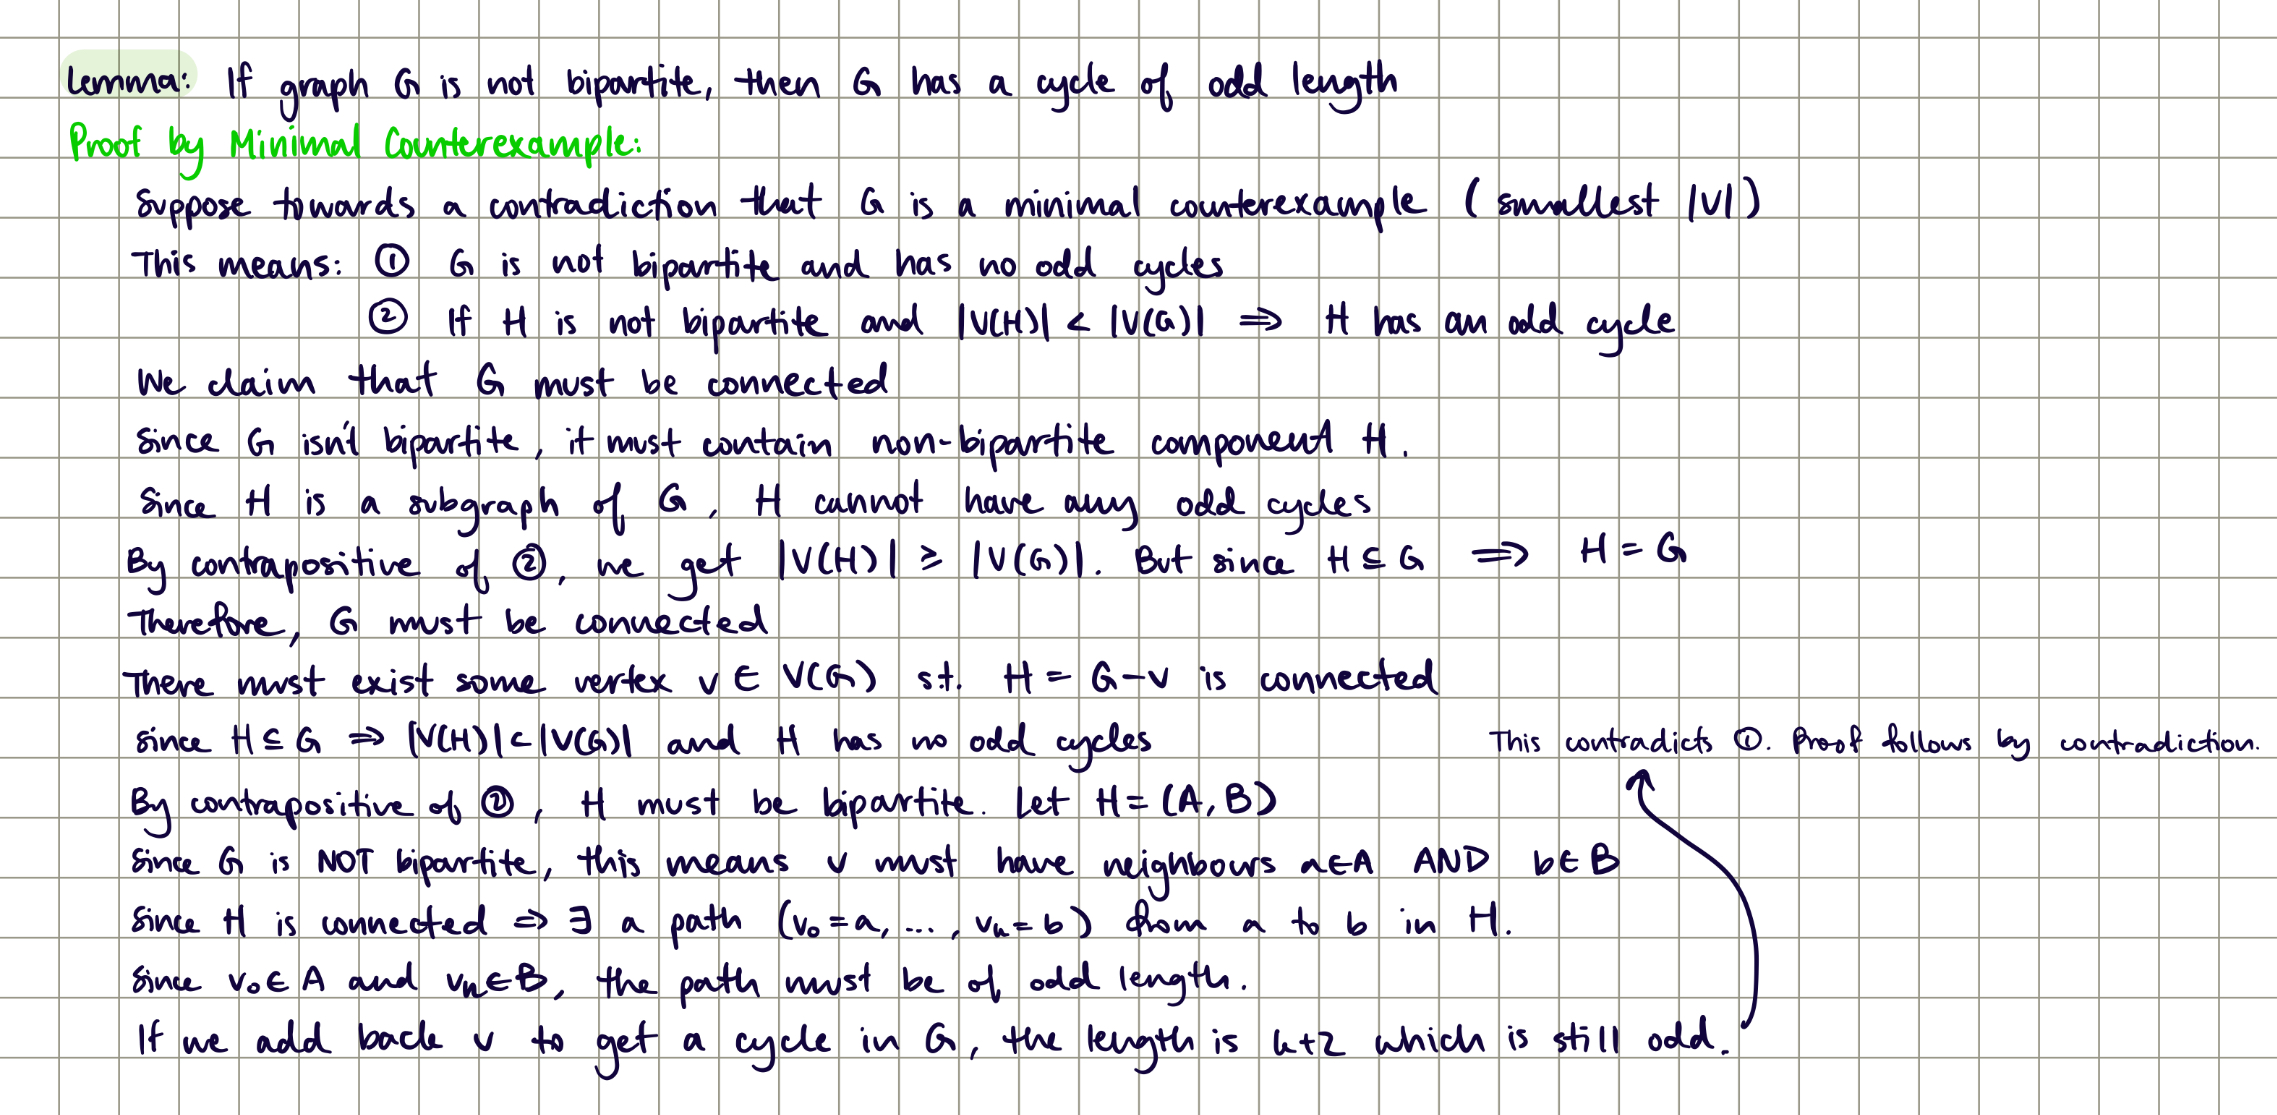 Lemma: If graph G is not bipartite, then G has a cycle of odd length
Proof by Minimal Counterexample:
Suppose towards a contradiction that G is a minimal counterexample (smallest |V|)
This means: ① G is not bipartite and has no odd cycles
② If H is not bipartite and |V(H)| < |V(G)| ⇒ H has an odd cycle
We claim that G must be connected
Since G isn't bipartite, it must contain non-bipartite component H.
Since H is a subgraph of G, H cannot have any odd cycles
By contrapositive of ②, we get |V(H)| ≥ |V(G)|. But since H ⊆ G ⇒ H = G
Therefore, G must be connected
There must exist some vertex v ∈ V(G) s.t. H = G-v is connected
since H ⊆ G ⇒ |V(H)| < |V(G)| and H has no odd cycles
By contrapositive of ②, H must be bipartite. Let H = (A, B)
Since G is NOT bipartite, this means v must have neighbours a∈A AND b∈B
Since H is connected ⇒ ∃ a path (v₀ = a, ... , vₖ = b) from a to b in H.
Since v₀ ∈ A and vₖ ∈ B, the path must be of odd length.
If we add back v to get a cycle in G, the length is k+2 which is still odd.
This contradicts ①. Proof follows by contradiction.